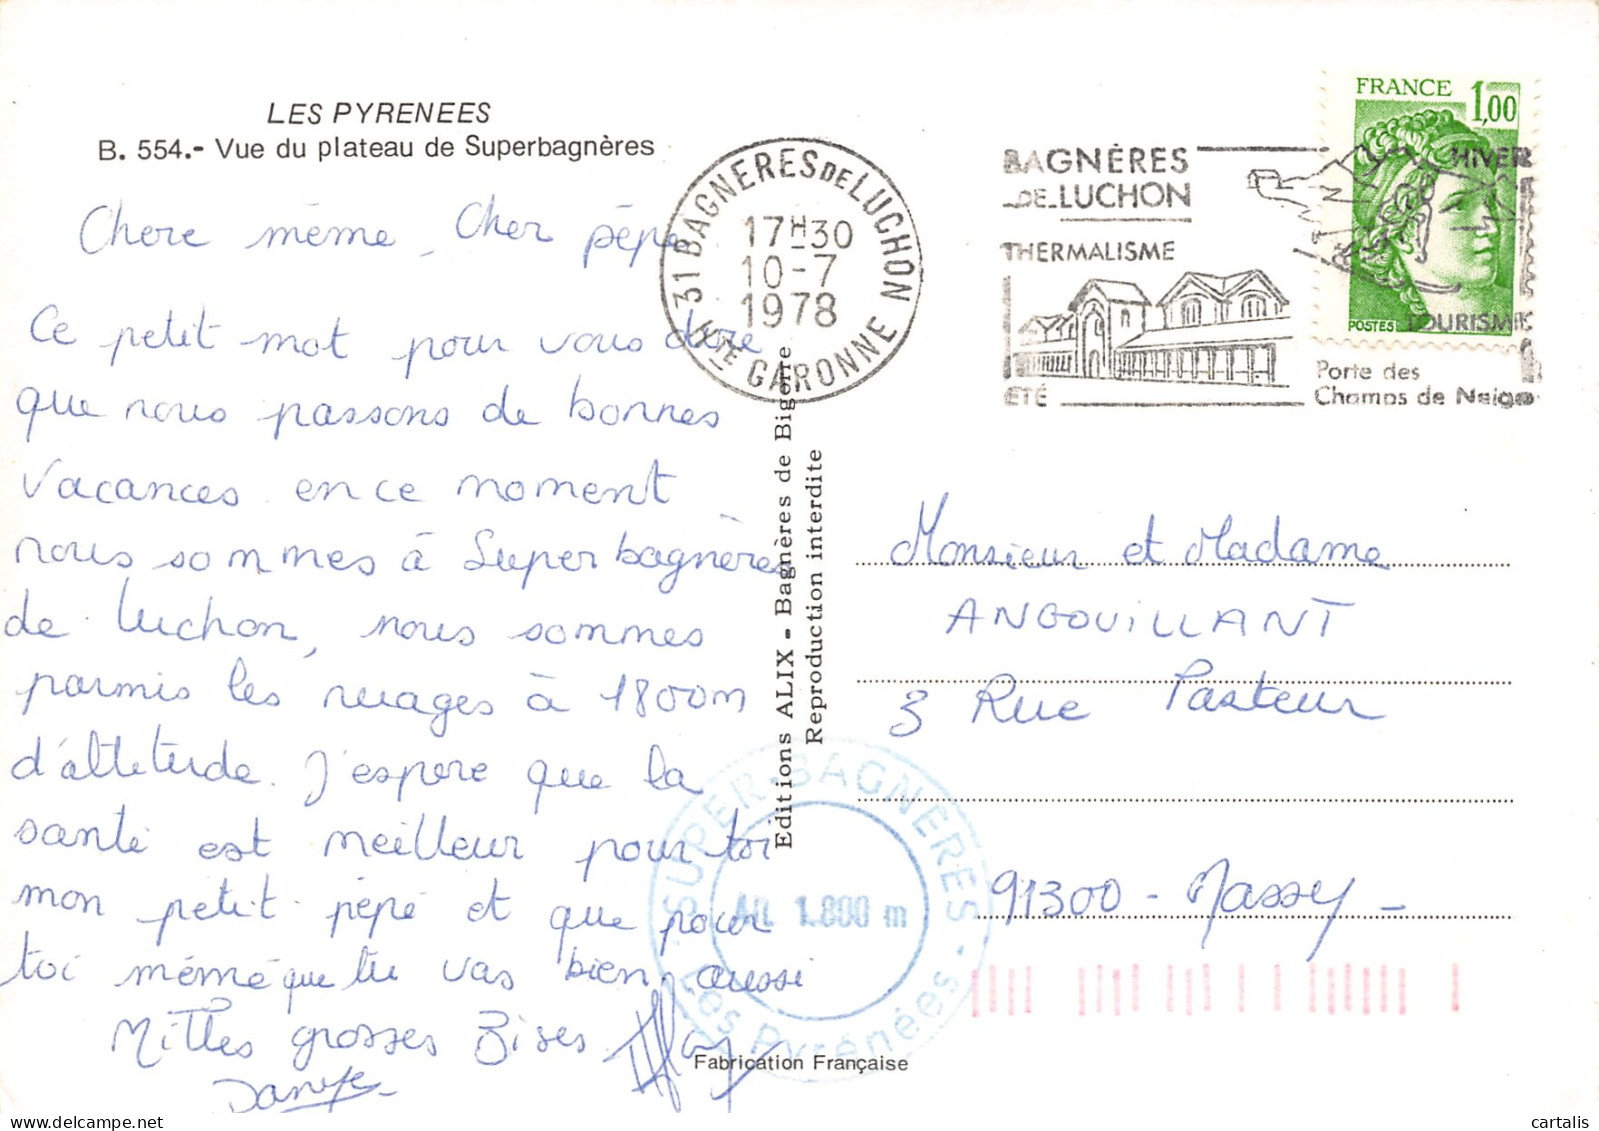 LES PYRENEES
B. 554.- Vue du plateau de Superbagnères
Chere mémé, Cher pépé
Ce petit mot pour vous dire
que nous passons de bonnes
vacances en ce moment
nous sommes à Super bagnères
de Luchon, nous sommes
parmis les nuages à 1800m
d'altitude. J'espere que la
santé est meilleur pour toi
mon petit pépé et que pour
toi mémé que tu vas bien aussi
Milles grosses Bises
31 BAGNERES DE LUCHON
17H30
10-7
1978
HTE GARONNE
BAGNÈRES
DE LUCHON
THERMALISME
ÉTÉ
HIVER
TOURISME
Porte des
Champs de Neige
FRANCE 1,00
POSTES
Editions ALIX - Bagnères de Bigorre
Reproduction interdite
Monsieur et Madame
ANGOUILLANT
3 Rue Pasteur
91300 - Massy -
SUPER-BAGNERES
Alt. 1.800 m
Les Pyrénées
Fabrication Française
cartalis